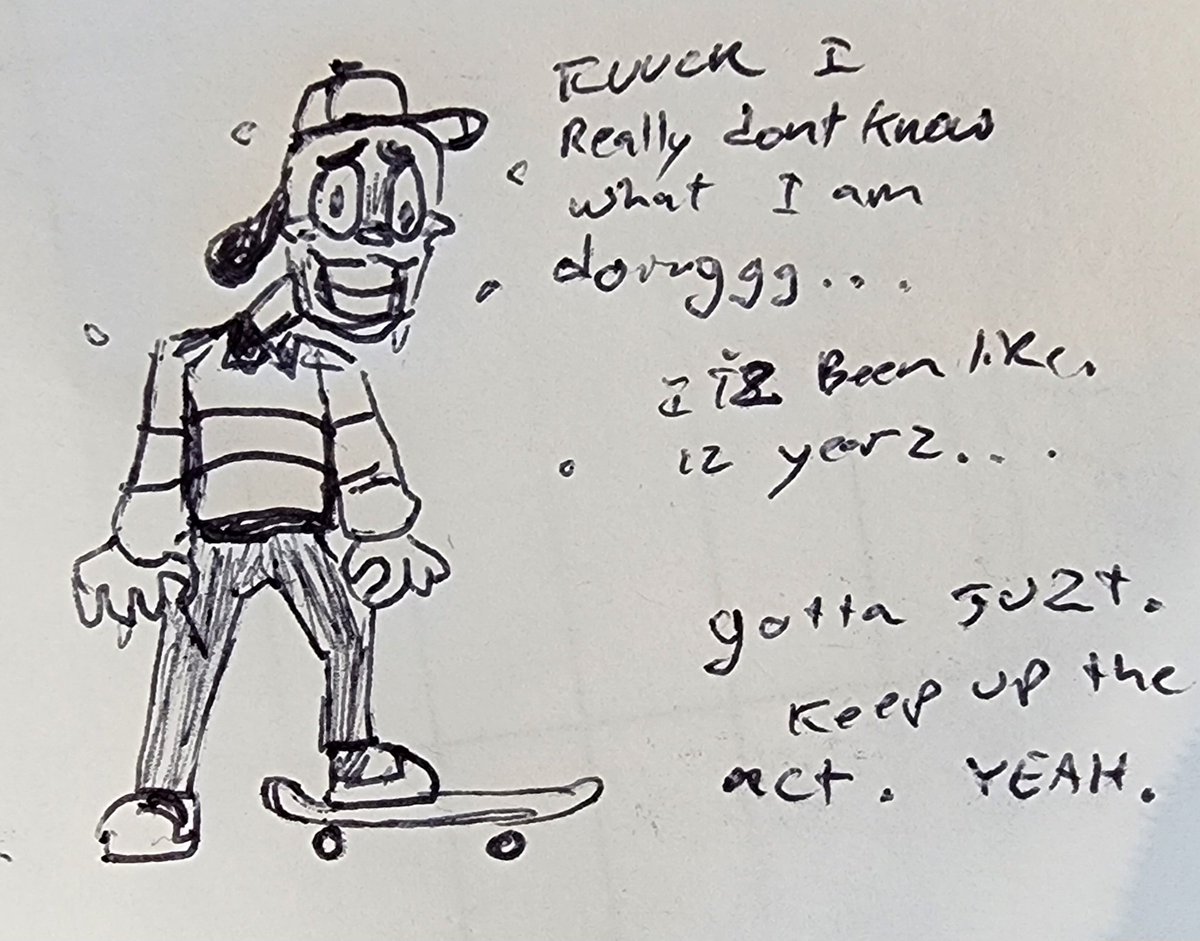 FUUCK I
Really dont know
what I am
doinggg...
Been like.
12 yearz...
gotta JUZt.
Keep up the
act. YEAH.